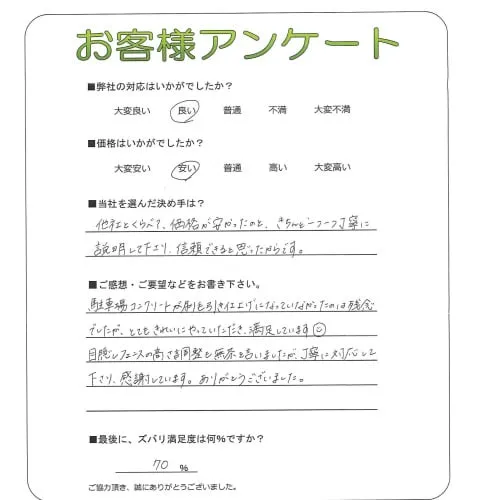 お客様アンケート
■弊社の対応はいかがでしたか？
大変良い 良い 普通 不満 大変不満
■価格はいかがでしたか？
大変安い 安い 普通 高い 大変高い
■当社を選んだ決め手は？
他社とくらべて、価格が安かったのと、きちんと一つ一つ丁寧に
説明して下さり、信頼できると思ったからです。
■ご感想・ご要望などをお書き下さい。
駐車場コンクリートが刷毛引き仕上げになっていなかったのは残念
でしたが、とてもきれいにやっていただき、満足しています☺
目隠しフェンスの高さ調整も無茶を言いましたが、丁寧に対応して
下さり、感謝しています。ありがとうございました。
■最後に、ズバリ満足度は何％ですか？
70 %
ご協力頂き、誠にありがとうございました。